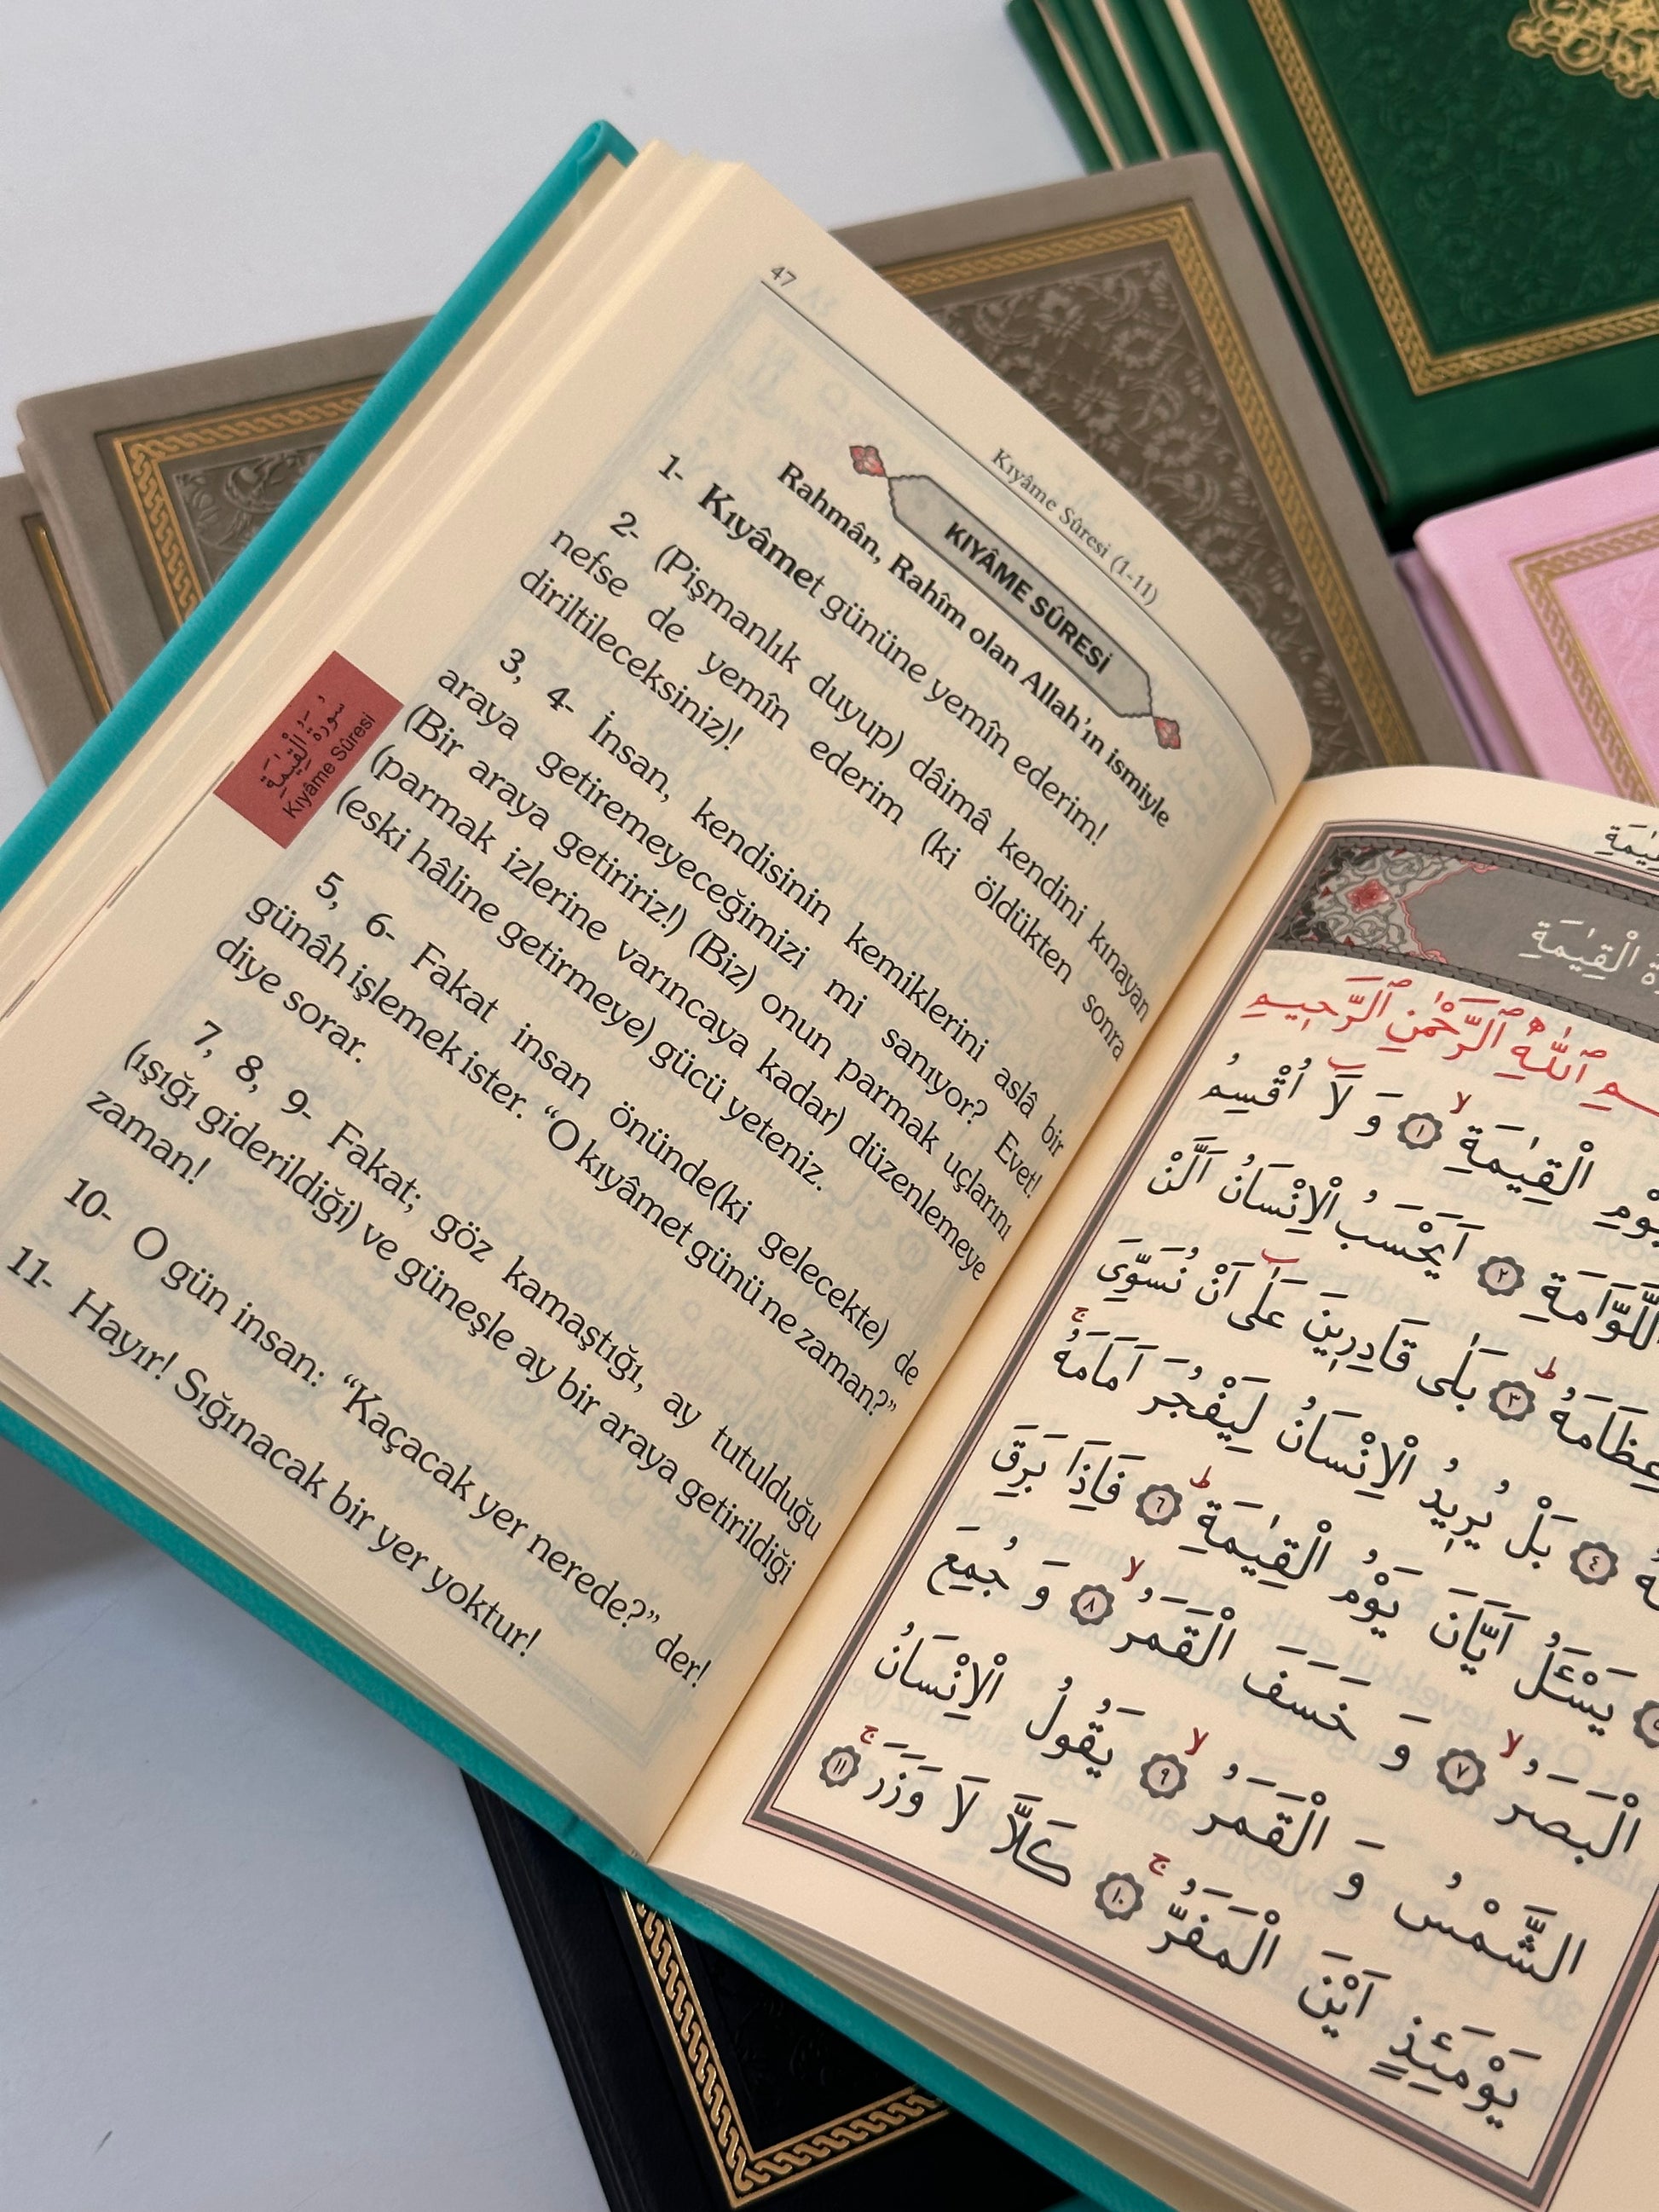 47
Kıyâme Sûresi (1-11)
KIYÂME SÛRESİ
Rahmân, Rahîm olan Allah'ın ismiyle
1- Kıyâmet gününe yemîn ederim!
2- (Pişmanlık duyup) dâimâ kendini kınayan
nefse de yemîn ederim (ki öldükten sonra
diriltileceksiniz)!
3, 4- İnsan, kendisinin kemiklerini aslâ bir
araya getiremeyeceğimizi mi sanıyor? Evet!
(Bir araya getiririz!) (Biz) onun parmak uçlarını
(parmak izlerine varıncaya kadar) düzenlemeye
(eski hâline getirmeye) gücü yeteniz.
5, 6- Fakat insan önünde(ki gelecekte) de
günâh işlemek ister. “O kıyâmet günü ne zaman?”
diye sorar.
7, 8, 9- Fakat; göz kamaştığı, ay tutulduğu
(ışığı giderildiği) ve güneşle ay bir araya getirildiği
zaman!
10- O gün insan: “Kaçacak yer nerede?” der!
11- Hayır! Sığınacak bir yer yoktur!
سُورَةُ الْقِيٰمَةِ
Kıyâme Sûresi
الْقِيٰمَةِ
اللّٰهِ الرَّحْمٰنِ الرَّحِيمِ
الْقِيٰمَةِ ۙ ﴿١﴾ وَ لَٓا اُقْسِمُ
اللَّوَّامَةِ ﴿٢﴾ اَيَحْسَبُ الْاِنْسَانُ اَلَّنْ
عِظَامَهُ ۜ ﴿٣﴾ بَلٰى قَادِرِينَ عَلٰٓى اَنْ نُسَوِّىَ
﴿٤﴾ بَلْ يُرِيدُ الْاِنْسَانُ لِيَفْجُرَ اَمَامَهُ ۚ
يَسْـَٔلُ اَيَّانَ يَوْمُ الْقِيٰمَةِ ۜ ﴿٦﴾ فَاِذَا بَرِقَ
الْبَصَرُ ۙ ﴿٧﴾ وَ خَسَفَ الْقَمَرُ ۙ ﴿٨﴾ وَ جُمِعَ
الشَّمْسُ وَ الْقَمَرُ ۙ ﴿٩﴾ يَقُولُ الْاِنْسَانُ
يَوْمَئِذٍ اَيْنَ الْمَفَرُّ ۚ ﴿١٠﴾ كَلَّا لَا وَزَرَ ۚ ﴿١١﴾